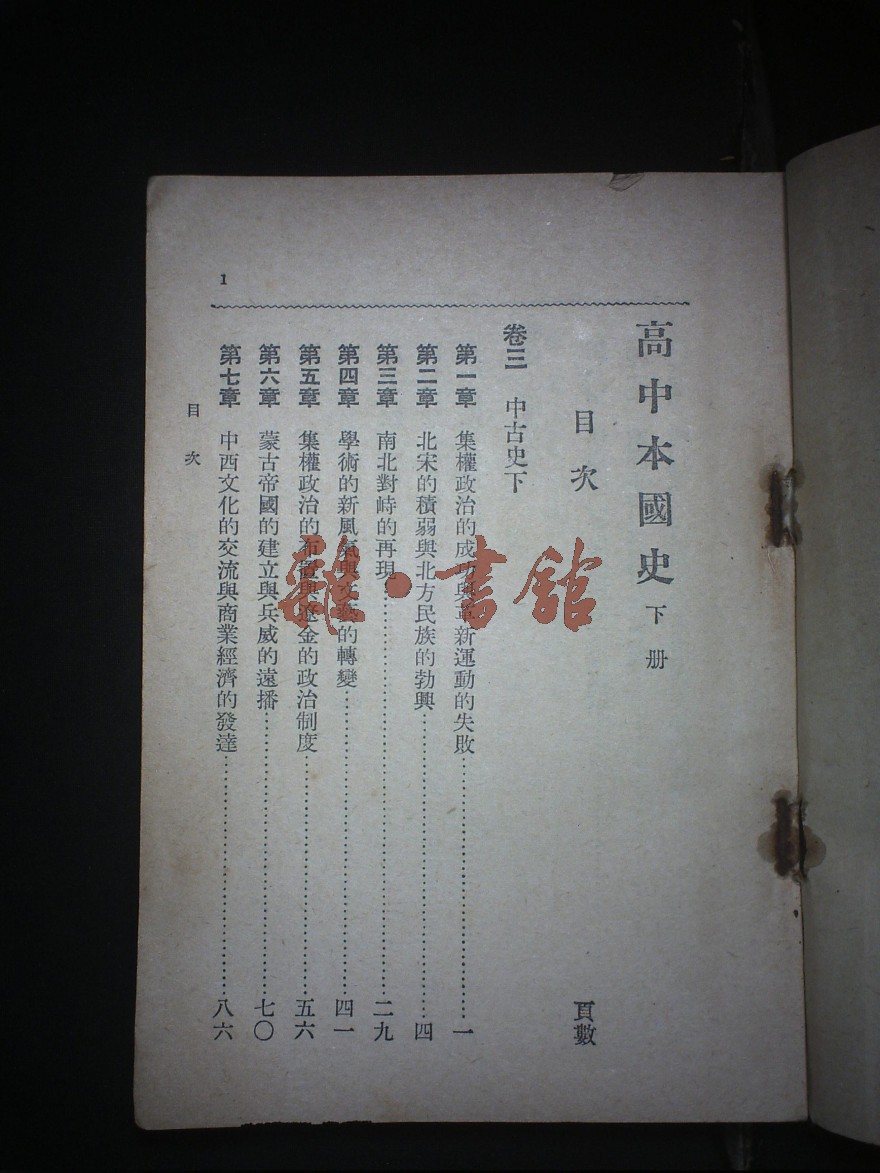 高中本國史 下册
目次
頁數
卷三 中古史下
第一章 集權政治的成功與革新運動的失敗……一
第二章 北宋的積弱與北方民族的勃興……四
第三章 南北對峙的再現……二九
第四章 學術的新風氣與文藝的轉變……四一
第五章 集權政治的布置與遼金的政治制度……五六
第六章 蒙古帝國的建立與兵威的遠播……七〇
第七章 中西文化的交流與商業經濟的發達……八六
目次
1
雜·書館